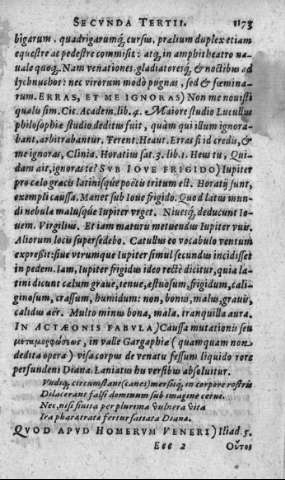 SECVNDA TERTII. 1173
bigarum. quadrigarumq; cursus. prælium duplex etiam
equestre ac pedestre commisit: atq; in amphiteatro na-
uale quoq;. Nam venationes. gladiatoresq; & noctibus ad
lychnuchos: nec virorum modò pugnas, sed & fœmina-
rum. ERRAS, ET ME IGNORAS) Non me nouisti
qualis sim. Cic. Academ. lib. 4. Maiore studio Lucullus
philosophiæ studio deditus fuit, quàm qui illum ignora-
bant, arbitrabantur. Terent. Heaut. Erras si id credis, &
me ignoras, Clinia. Horatius sat. 3. lib. 1. Heus tu, Qui-
dam ait, ignoras te? SVB IOVE FRIGIDO) Iupiter
pro cælo græcis latinisque poëtis tritum est. Horatij sunt,
exempli caussa. Manet sub Ioue frigido. Quod latus mun-
di nebulæ malusque Iupiter vrget. Niuesq; deducunt Io-
uem. Virgilius. Et iam maturis metuendus Iupiter vuis.
Aliorum locis supersedebo. Catullus eo vocabulo ventum
expreßit: siue vtrumque Iupiter simul secundus incidisset
in pedem. Iam, Iupiter frigidus ideo rectè dicitur, quia la-
tini dicunt cælum graue, tenue, æstuosum, frigidum, cali-
ginosum, crassum, humidum: non, bonus, malus, grauis,
calidus aër. Multo minus bona, mala. tranquilla aura.
IN ACTÆONIS FABVLA) Caussa mutationis seu
in valle Gargaphia (quamquam non
dedita opera) visa corpus de venatu fessum liquido rore
perfundens Diana. Laniatus hu versibus absoluitur.
Vndiq; circumstant (canes) mersisq; in corpore rostris
Dilacerant falsi dominum sub imagine cerui.
Nec, nisi finita per plurima vulnera vita
Ira pharetratæ fertur satiata Dianæ.
QVOD APVD HOMERVM VENERI) Iliad. 5.
Eee 2 Οὗτος